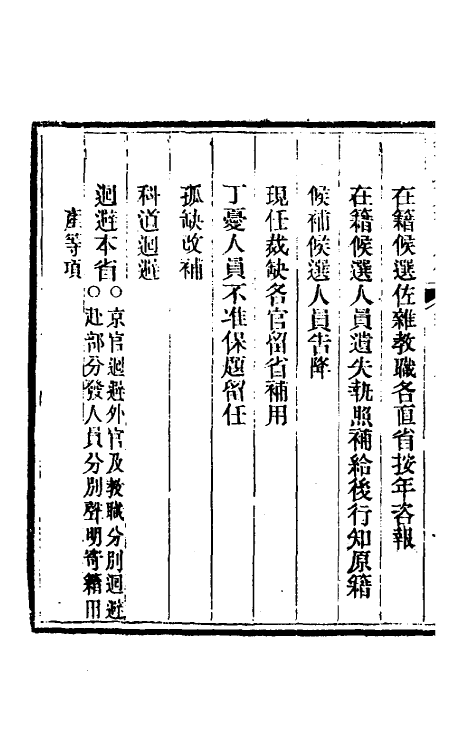 在籍候選佐雜教職各直省按年咨報
在籍候選人員遺失執照補給後行知原籍
候補候選人員告降
現任裁缺各官留省補用
丁憂人員不准保題留任
孤缺改補
科道迴避
迴避本省○京官迴避外官及教職分別迴避
○赴部分發人員分別聲明寄籍田
產等項